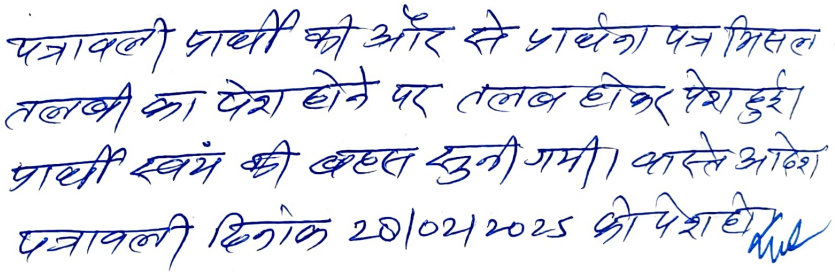 पत्रावली प्रार्थी की ओर से प्रार्थना पत्र मिसल
तलबी का पेश होने पर तलब होकर पेश हुई।
प्रार्थी स्वयं की बहस सुनी गयी। वास्ते आदेश
पत्रावली दिनांक 28/02/2025 को पेश हो